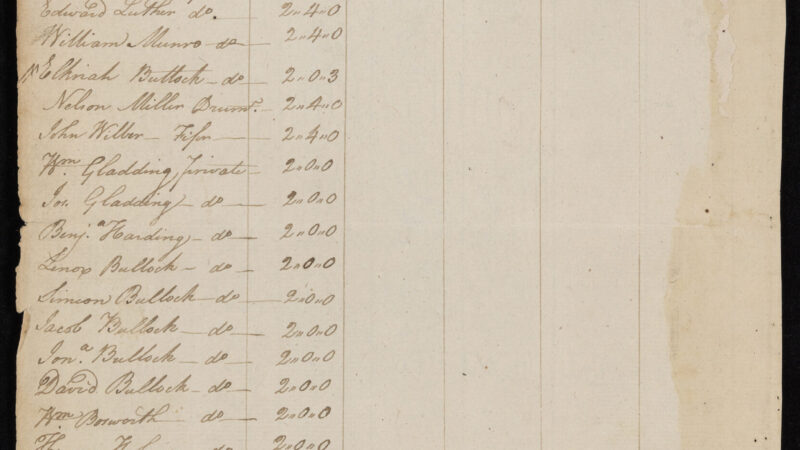 Edward Luther do. 2"4"0
William Munro do 2"4"0
Elkriah Bullock do 2"0"3
Nelson Miller Drumr. 2"4"0
John Wilber Fifer 2"4"0
Wm. Gladding, private 2"0"0
Jos. Gladding do 2"0"0
Benja. Harding do 2"0"0
Lenox Bullock do 2"0"0
Simeon Bullock do 2"0"0
Jacob Bullock do 2"0"0
Jona. Bullock do 2"0"0
David Bullock do 2"0"0
Wm Bosworth do 2"0"0
do 2"0"0